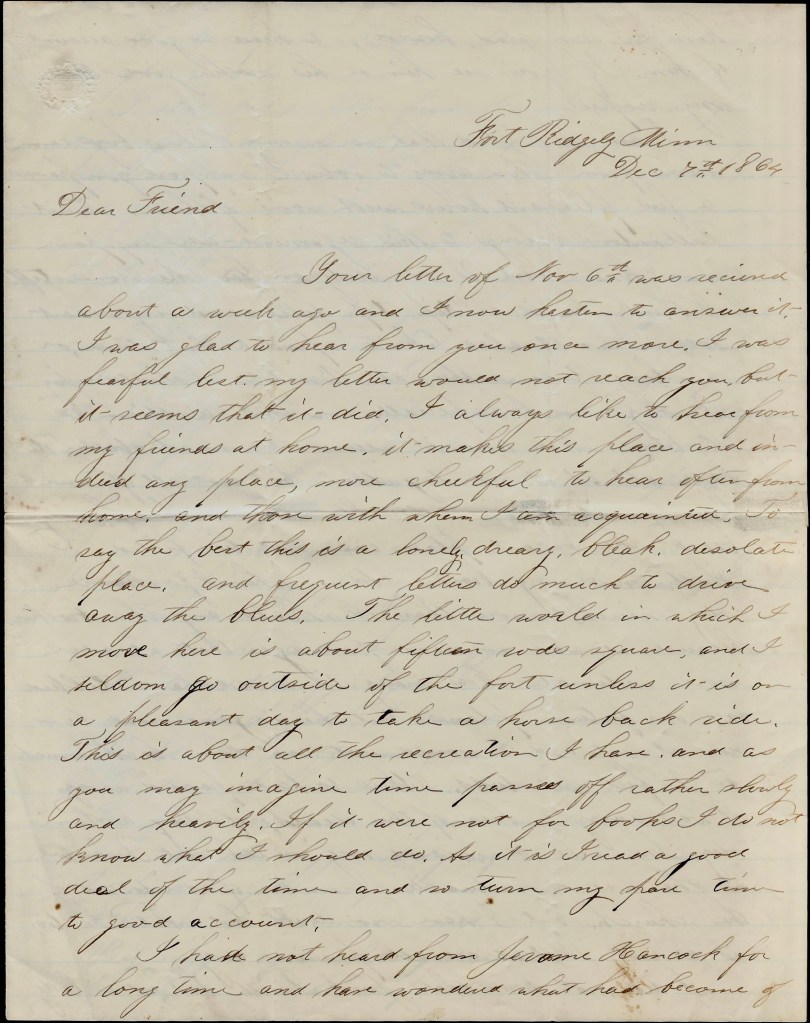 Fort Ridgely Minn
Dec 7th 1864
Dear Friend
Your letter of Nov 6th was recieved
about a week ago and I now hasten to answer it.
I was glad to hear from you once more. I was
fearful lest my letter would not reach you, but
it seems that it did. I always like to hear from
my friends at home. it makes this place and in-
deed any place, more cheerful to hear often from
home. and those with whom I am acquainted. To
say the best this is a lonely, dreary, bleak, desolate
place. and frequent letters do much to drive
away the blues. The little world in which I
move here is about fifteen rods square, and I
seldom go outside of the fort unless it is on
a pleasant day to take a horse back ride.
This is about all the recreation I have. and as
you may imagine time passes off rather slowly
and heavily. If it were not for books I do not
know what I should do. As it is I read a good
deal of the time and so turn my spare time
to good account.
I had not heard from Jerome Hancock for
a long time and have wondered what had become of